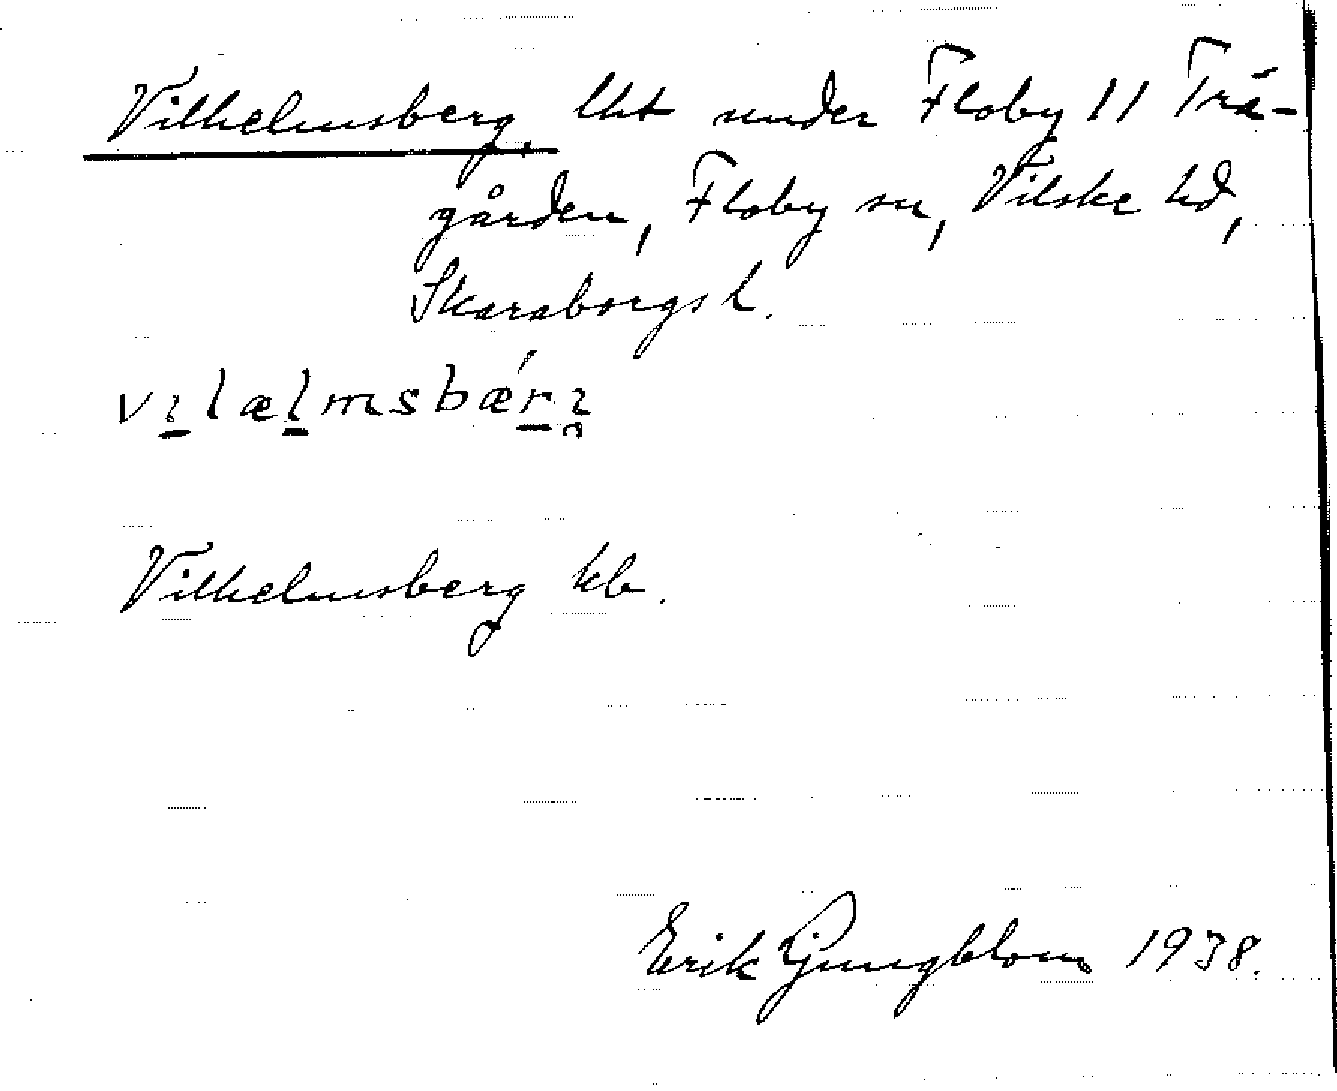 Vilhelmsberg, lht under Floby 11 Trä-
gården, Floby sn, Vilske hd,
Skaraborgs l.
vılælmsbæ´rı
Vilhelmsberg kb.
Erik Ljungblom 1938.